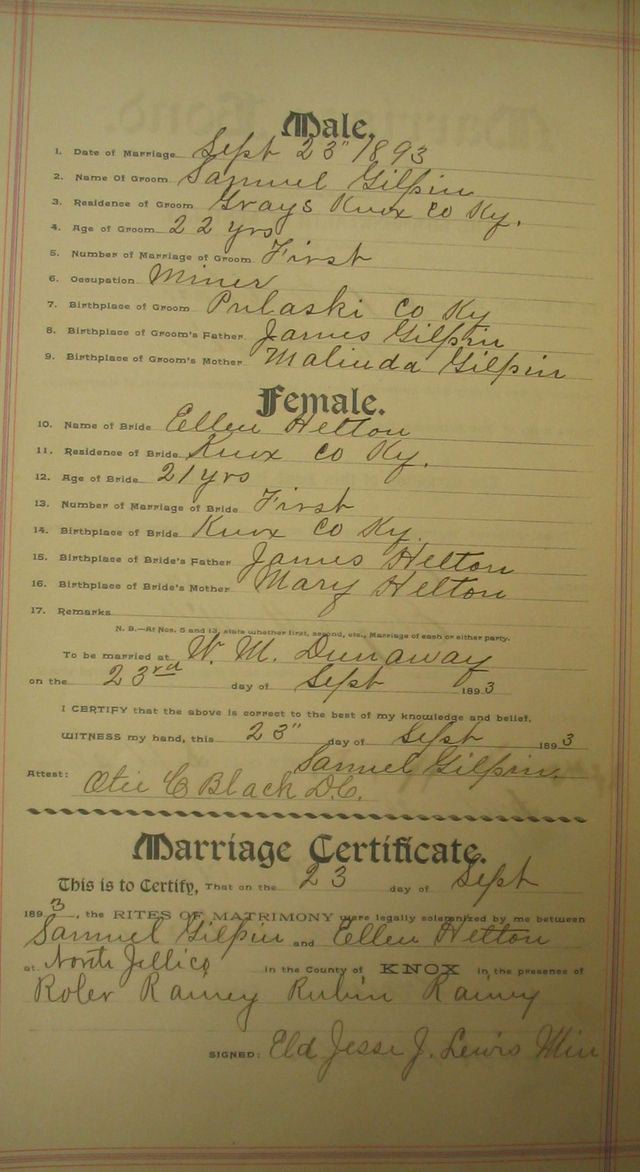 Male.
1. Date of Marriage Sept 23" 1893
2. Name Of Groom Samuel Gilpin
3. Residence of Groom Grays Knox Co Ky.
4. Age of Groom 22 yrs
5. Number of Marriage of Groom First
6. Occupation Miner
7. Birthplace of Groom Pulaski Co Ky
8. Birthplace of Groom's Father James Gilpin
9. Birthplace of Groom's Mother Malinda Gilpin
Female.
10. Name of Bride Ellen Helton
11. Residence of Bride Knox Co Ky.
12. Age of Bride 21 yrs
13. Number of Marriage of Bride First
14. Birthplace of Bride Knox Co Ky.
15. Birthplace of Bride's Father James Helton
16. Birthplace of Bride's Mother Mary Helton
17. Remarks
N. B.—At Nos. 5 and 13, state whether first, second, etc., Marriage of each or either party.
To be married at W. M. Dunaway
on the 23rd day of Sept 1893
I CERTIFY that the above is correct to the best of my knowledge and belief.
WITNESS my hand, this 23" day of Sept 1893
Samuel Gilpin.
Attest: Otie C Black D.C.
Marriage Certificate.
This is to Certify, That on the 23 day of Sept
1893, the RITES OF MATRIMONY were legally solemnized by me between
Samuel Gilpin and Ellen Helton
at North Jellico in the County of KNOX in the presence of
Roler Rainey Rubin Rainey
SIGNED: Eld Jesse J. Lewis Min